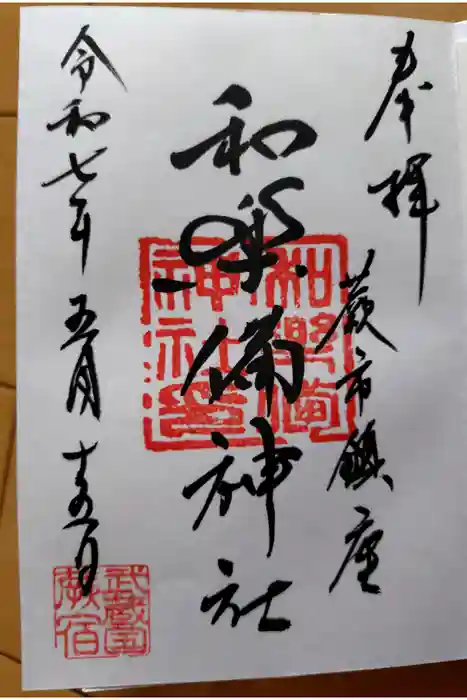 奉拝
蕨市鎮座
和樂備神社
和樂備
神社印
令和七年五月十五日
武蔵国
蕨宿